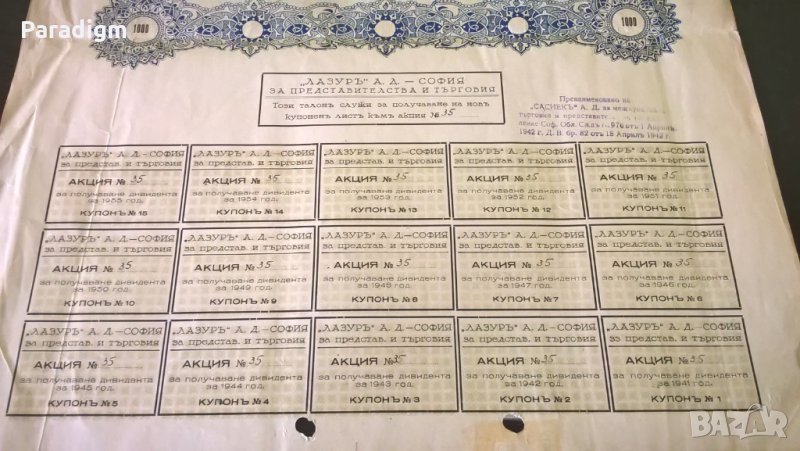 Paradigm
1000
1000
„ЛАЗУРЪ" А. Д. — СОФИЯ
ЗА ПРЕДСТАВИТЕЛСТВА И ТЪРГОВИЯ
Този талонъ служи за получаване на новъ
купоненъ листъ къмъ акция № 35
Преименовано на
„САСИЕКЪ" А. Д. за
търговия и представит
Соф. Обл. Съдъ № 976 отъ 1 Априлъ
1942 г. Д. В. бр. 82 отъ 18 Априлъ 1942 г.
„ЛАЗУРЪ" А. Д.—СОФИЯ
за представ. и търговия
АКЦИЯ № 35
за получаване дивидента
за 1955 год.
КУПОНЪ № 15
„ЛАЗУРЪ" А. Д.—СОФИЯ
за представ. и търговия
АКЦИЯ № 35
за получаване дивидента
за 1954 год.
КУПОНЪ № 14
„ЛАЗУРЪ" А. Д.—СОФИЯ
за представ. и търговия
АКЦИЯ № 35
за получаване дивидента
за 1953 год.
КУПОНЪ № 13
„ЛАЗУРЪ" А. Д.—СОФИЯ
за представ. и търговия
АКЦИЯ № 35
за получаване дивидента
за 1952 год.
КУПОНЪ № 12
„ЛАЗУРЪ" А. Д.—СОФИЯ
за представ. и търговия
АКЦИЯ № 35
за получаване дивидента
за 1951 год.
КУПОНЪ № 11
„ЛАЗУРЪ" А. Д.—СОФИЯ
за представ. и търговия
АКЦИЯ № 35
за получаване дивидента
за 1950 год.
КУПОНЪ № 10
„ЛАЗУРЪ" А. Д.—СОФИЯ
за представ. и търговия
АКЦИЯ № 35
за получаване дивидента
за 1949 год.
КУПОНЪ № 9
„ЛАЗУРЪ" А. Д.—СОФИЯ
за представ. и търговия
АКЦИЯ № 35
за получаване дивидента
за 1948 год.
КУПОНЪ № 8
„ЛАЗУРЪ" А. Д.—СОФИЯ
за представ. и търговия
АКЦИЯ № 35
за получаване дивидента
за 1947 год.
КУПОНЪ № 7
„ЛАЗУРЪ" А. Д.—СОФИЯ
за представ. и търговия
АКЦИЯ № 35
за получаване дивидента
за 1946 год.
КУПОНЪ № 6
„ЛАЗУРЪ" А. Д.—СОФИЯ
за представ. и търговия
АКЦИЯ № 35
за получаване дивидента
за 1945 год.
КУПОНЪ № 5
„ЛАЗУРЪ" А. Д.—СОФИЯ
за представ. и търговия
АКЦИЯ № 35
за получаване дивидента
за 1944 год.
КУПОНЪ № 4
„ЛАЗУРЪ" А. Д.—СОФИЯ
за представ. и търговия
АКЦИЯ № 35
за получаване дивидента
за 1943 год.
КУПОНЪ № 3
„ЛАЗУРЪ" А. Д.—СОФИЯ
за представ. и търговия
АКЦИЯ № 35
за получаване дивидента
за 1942 год.
КУПОНЪ № 2
„ЛАЗУРЪ" А. Д.—СОФИЯ
за представ. и търговия
АКЦИЯ № 35
за получаване дивидента
за 1941 год.
КУПОНЪ № 1
BAZAR